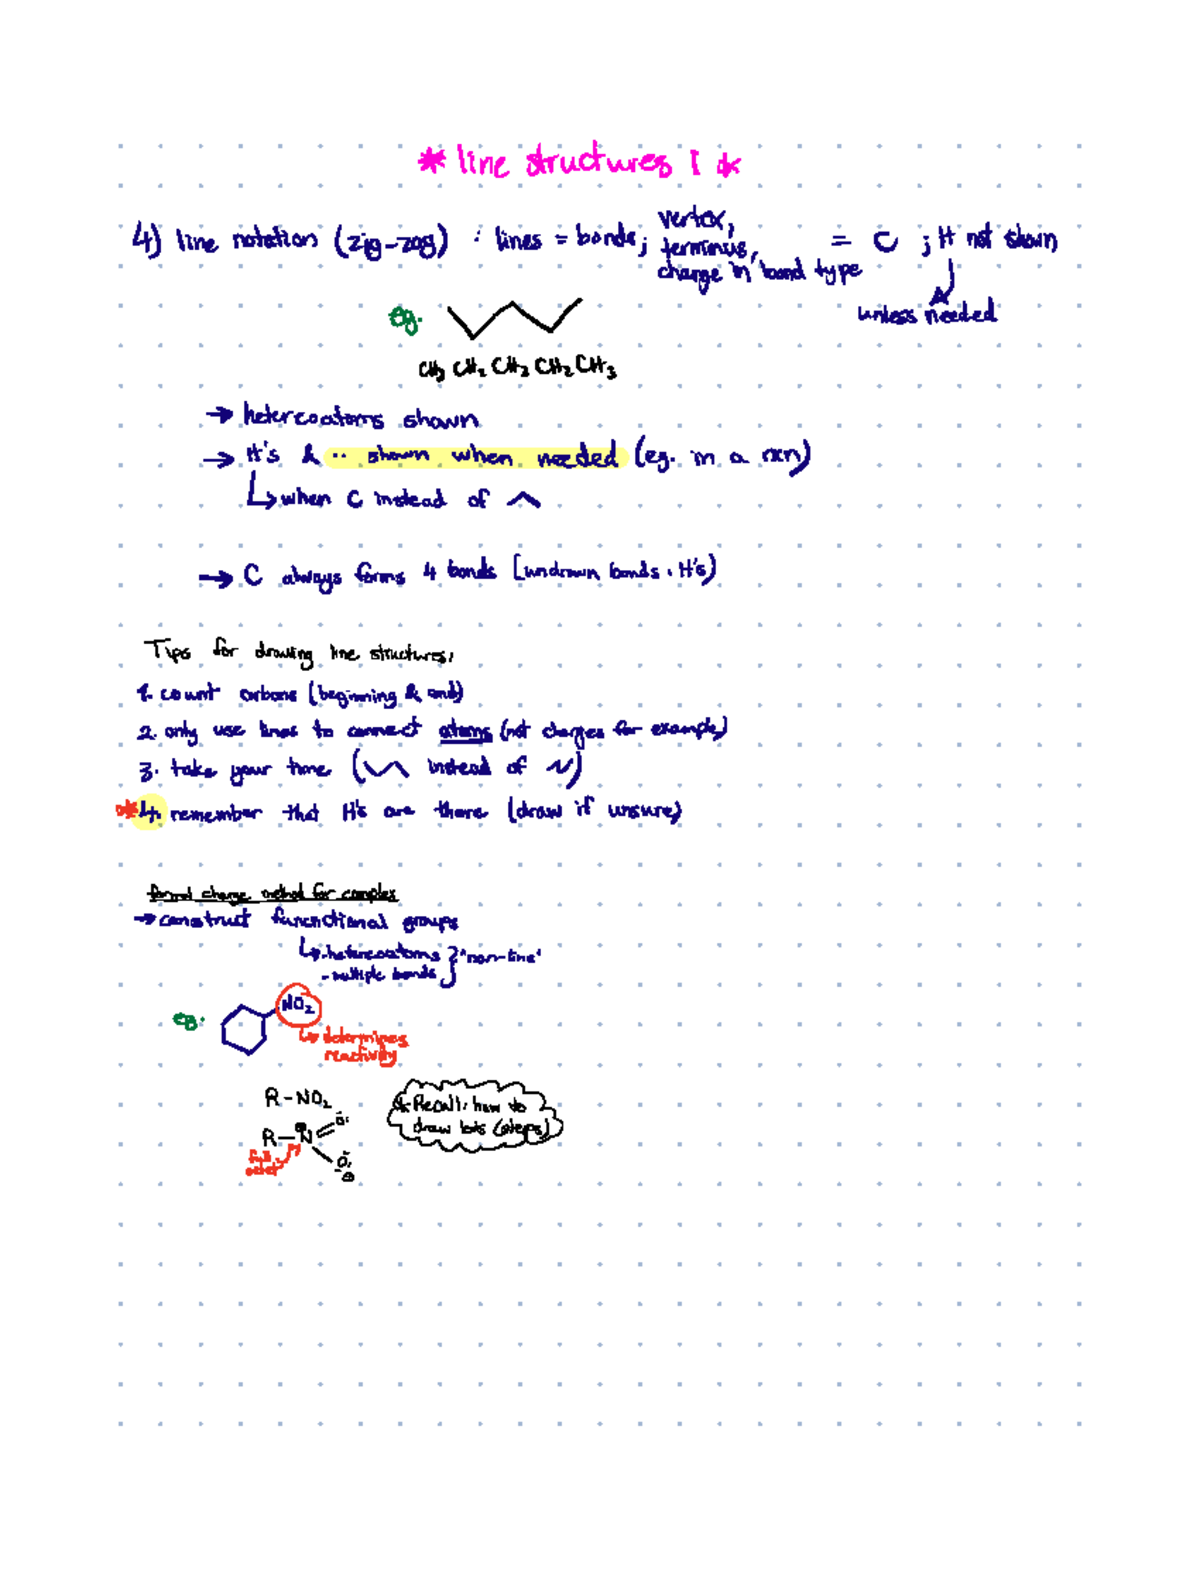 * line structures 1 *
4) line notation (zig-zag) : lines = bonds; vertex, terminus, change in bond type = C ; H not shown
unless needed
eg.
CH3 CH2 CH2 CH2 CH3
→ heteroatoms shown
→ H's & ·· shown when needed (eg. in a rxn)
↳ when C instead of
→ C always forms 4 bonds (undrawn bonds : H's)
Tips for drawing line structures:
1. count carbons (beginning & end)
2. only use lines to connect atoms (not charges for example)
3. take your time ( instead of )
*4. remember that H's are there (draw if unsure)
formal charge method for complex
→ construct functional groups
↳ - heteroatoms } "non-line"
- multiple bonds
eg.
NO2
↳ determines
reactivity
R-NO2
* Recall: how to
draw (steps)
⊕ O
R-N
full
octet
O
⊖